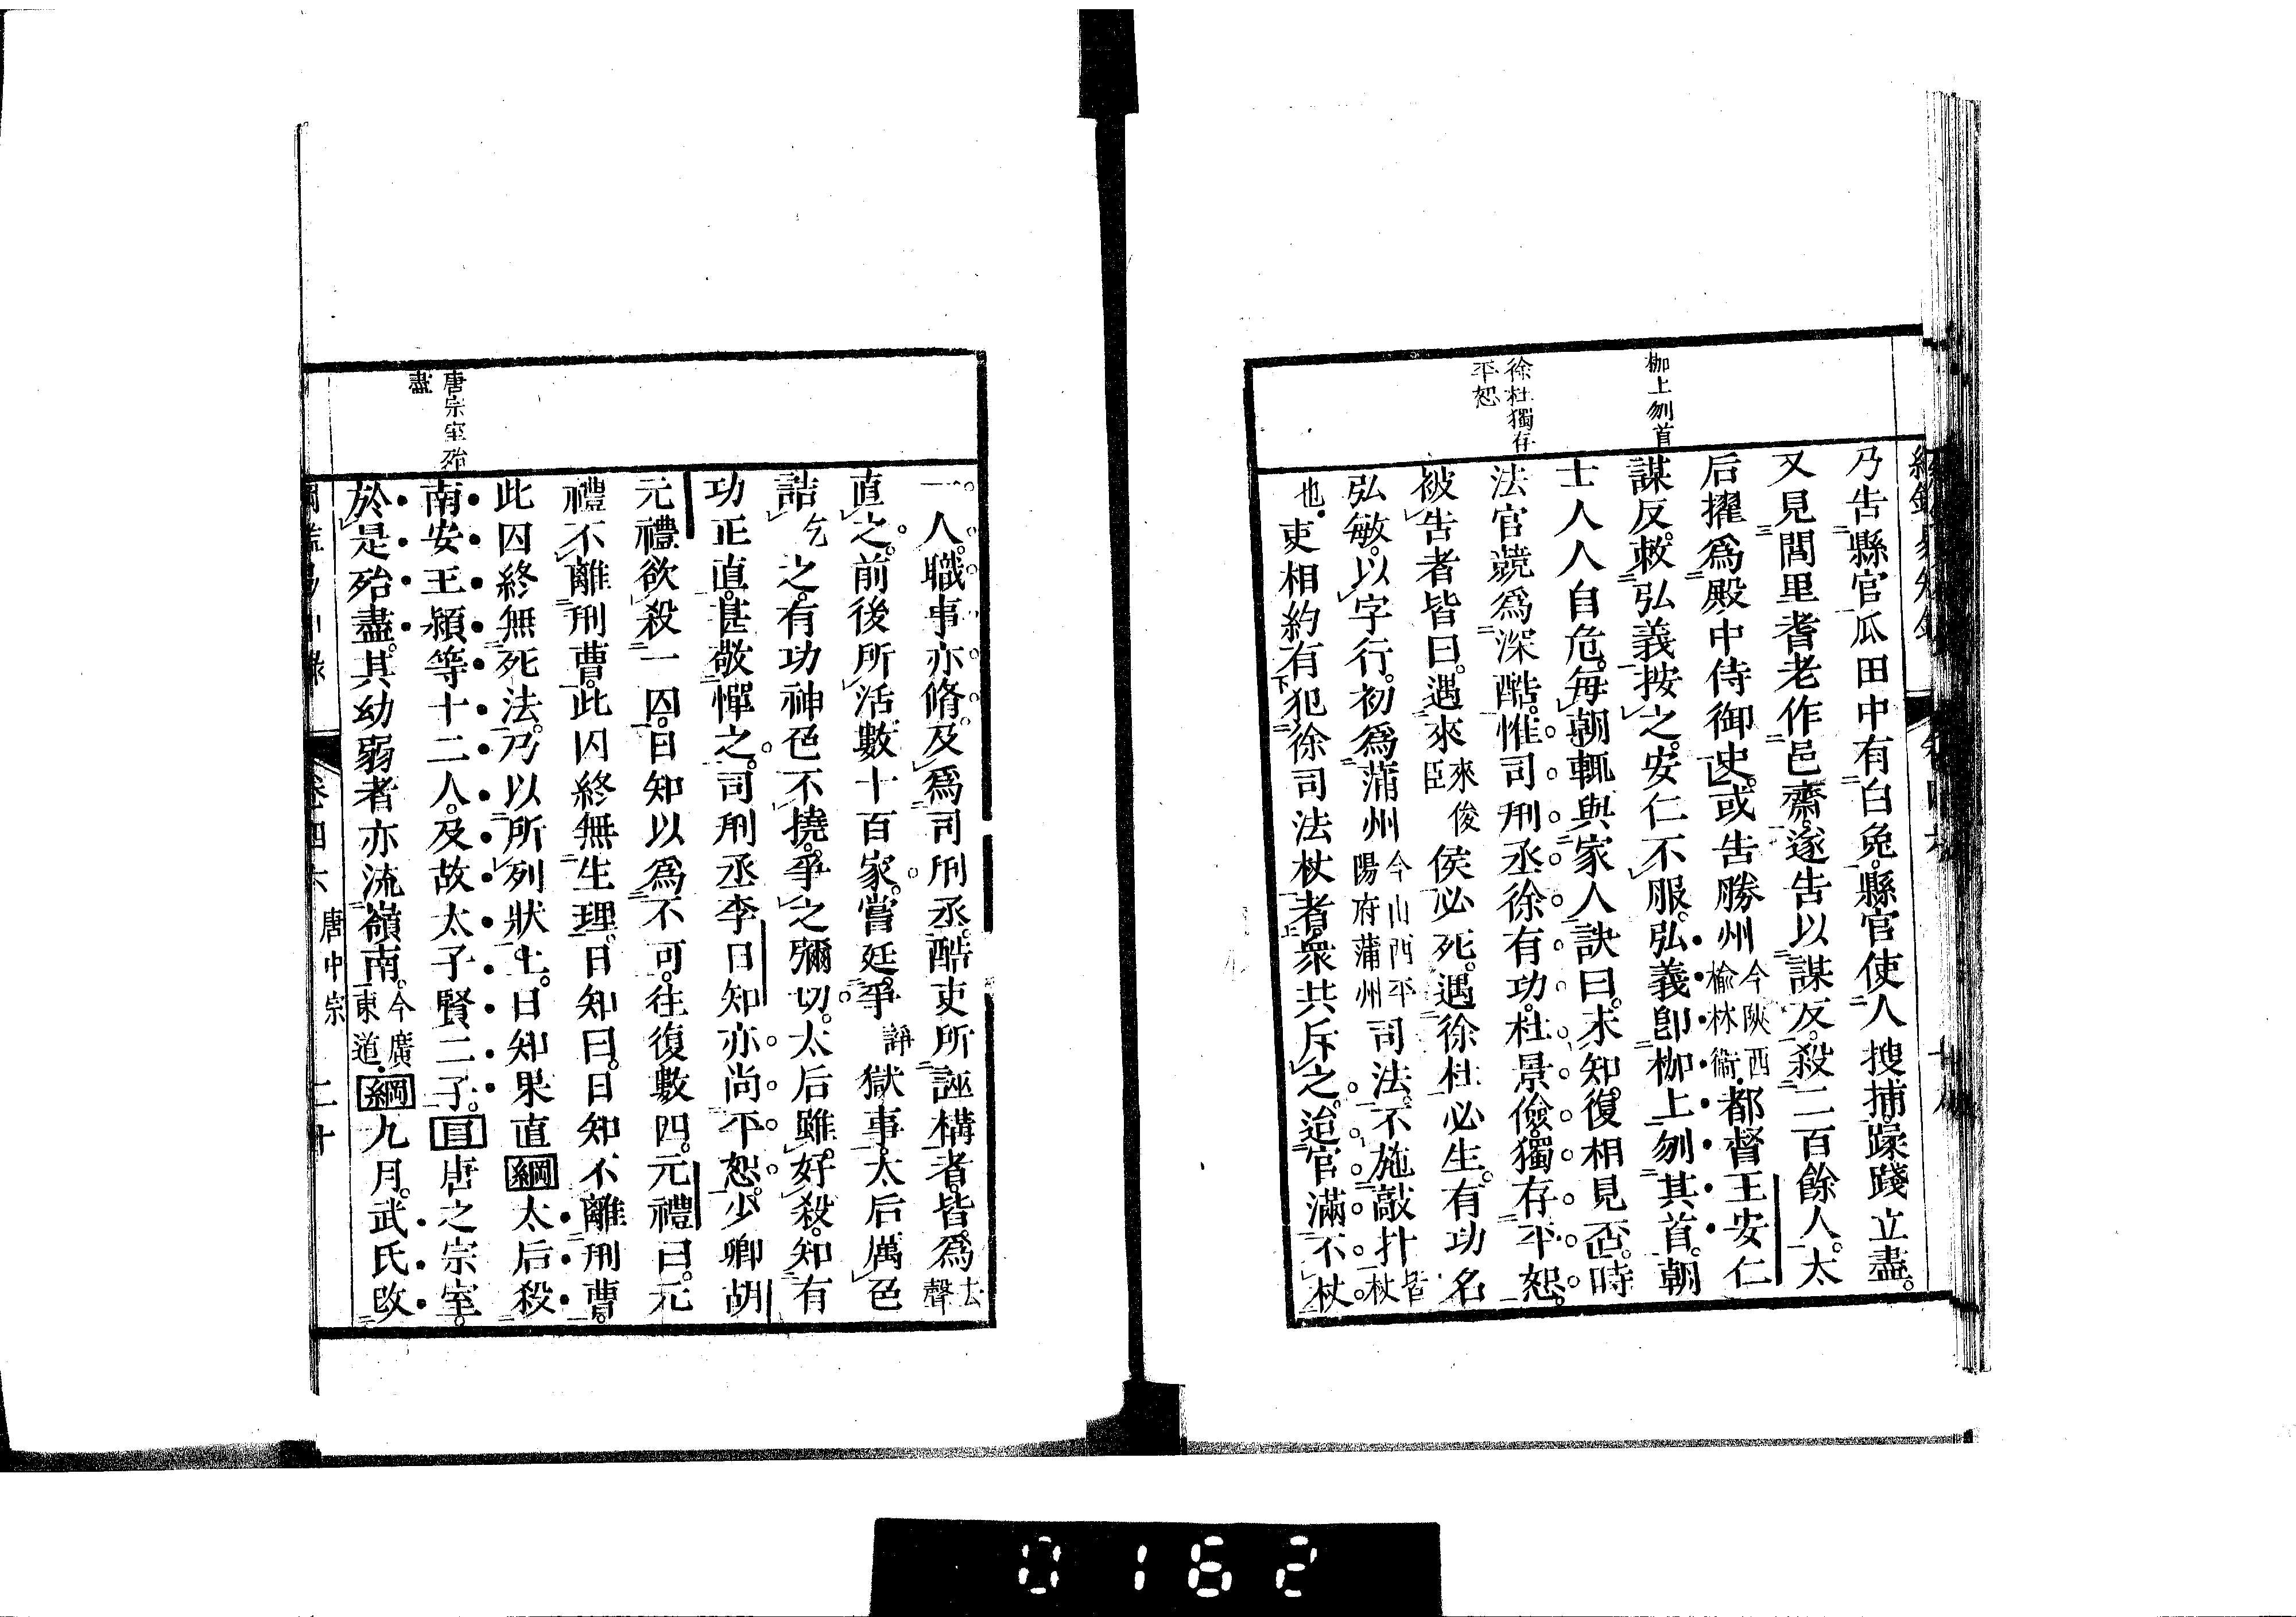 枷上刎首
徐杜獨存
平恕
乃告縣官瓜田中有白兔。縣官使人搜捕。蹂踐立盡。
又見閭里耆老作邑齋。遂告以謀反。殺二百餘人。太
后擢爲殿中侍御史。或告勝州今陝西榆林衞。都督王安仁
謀反。敕弘義按之。安仁不服。弘義卽枷上刎其首。朝
士人人自危。每朝輒與家人訣曰。未知復相見否。時
法官競爲深酷。惟司刑丞徐有功。杜景儉。獨存平恕。
被告者皆曰。遇來來俊臣侯必死。遇徐杜必生。有功名
弘敏。以字行。初爲蒲州今山西平陽府蒲州司法。不施敲扑皆杖
也。吏相約有犯徐司法杖者。衆共斥之。迨官滿不杖
唐宗室殆
盡
一人。職事亦脩。及爲司刑丞。酷吏所誣構者。皆爲去聲
直之。前後所活數十百家。嘗廷爭諍獄事。太后厲色
詰乞之。有功神色不撓。爭之彌切。太后雖好殺。知有
功正直。甚敬憚之。司刑丞李日知亦尚平恕。少卿胡
元禮欲殺一囚。日知以爲不可。往復數四。元禮曰。元
禮不離刑曹。此囚終無生理。日知曰。日知不離刑曹。
此囚終無死法。乃以所列狀上。日知果直綱太后殺
南安王潁等十二人。及故太子賢二子。目唐之宗室。
於是殆盡。其幼弱者亦流嶺南。今廣東道。綱九月。武氏改
卷四六 唐中宗 二十
0162